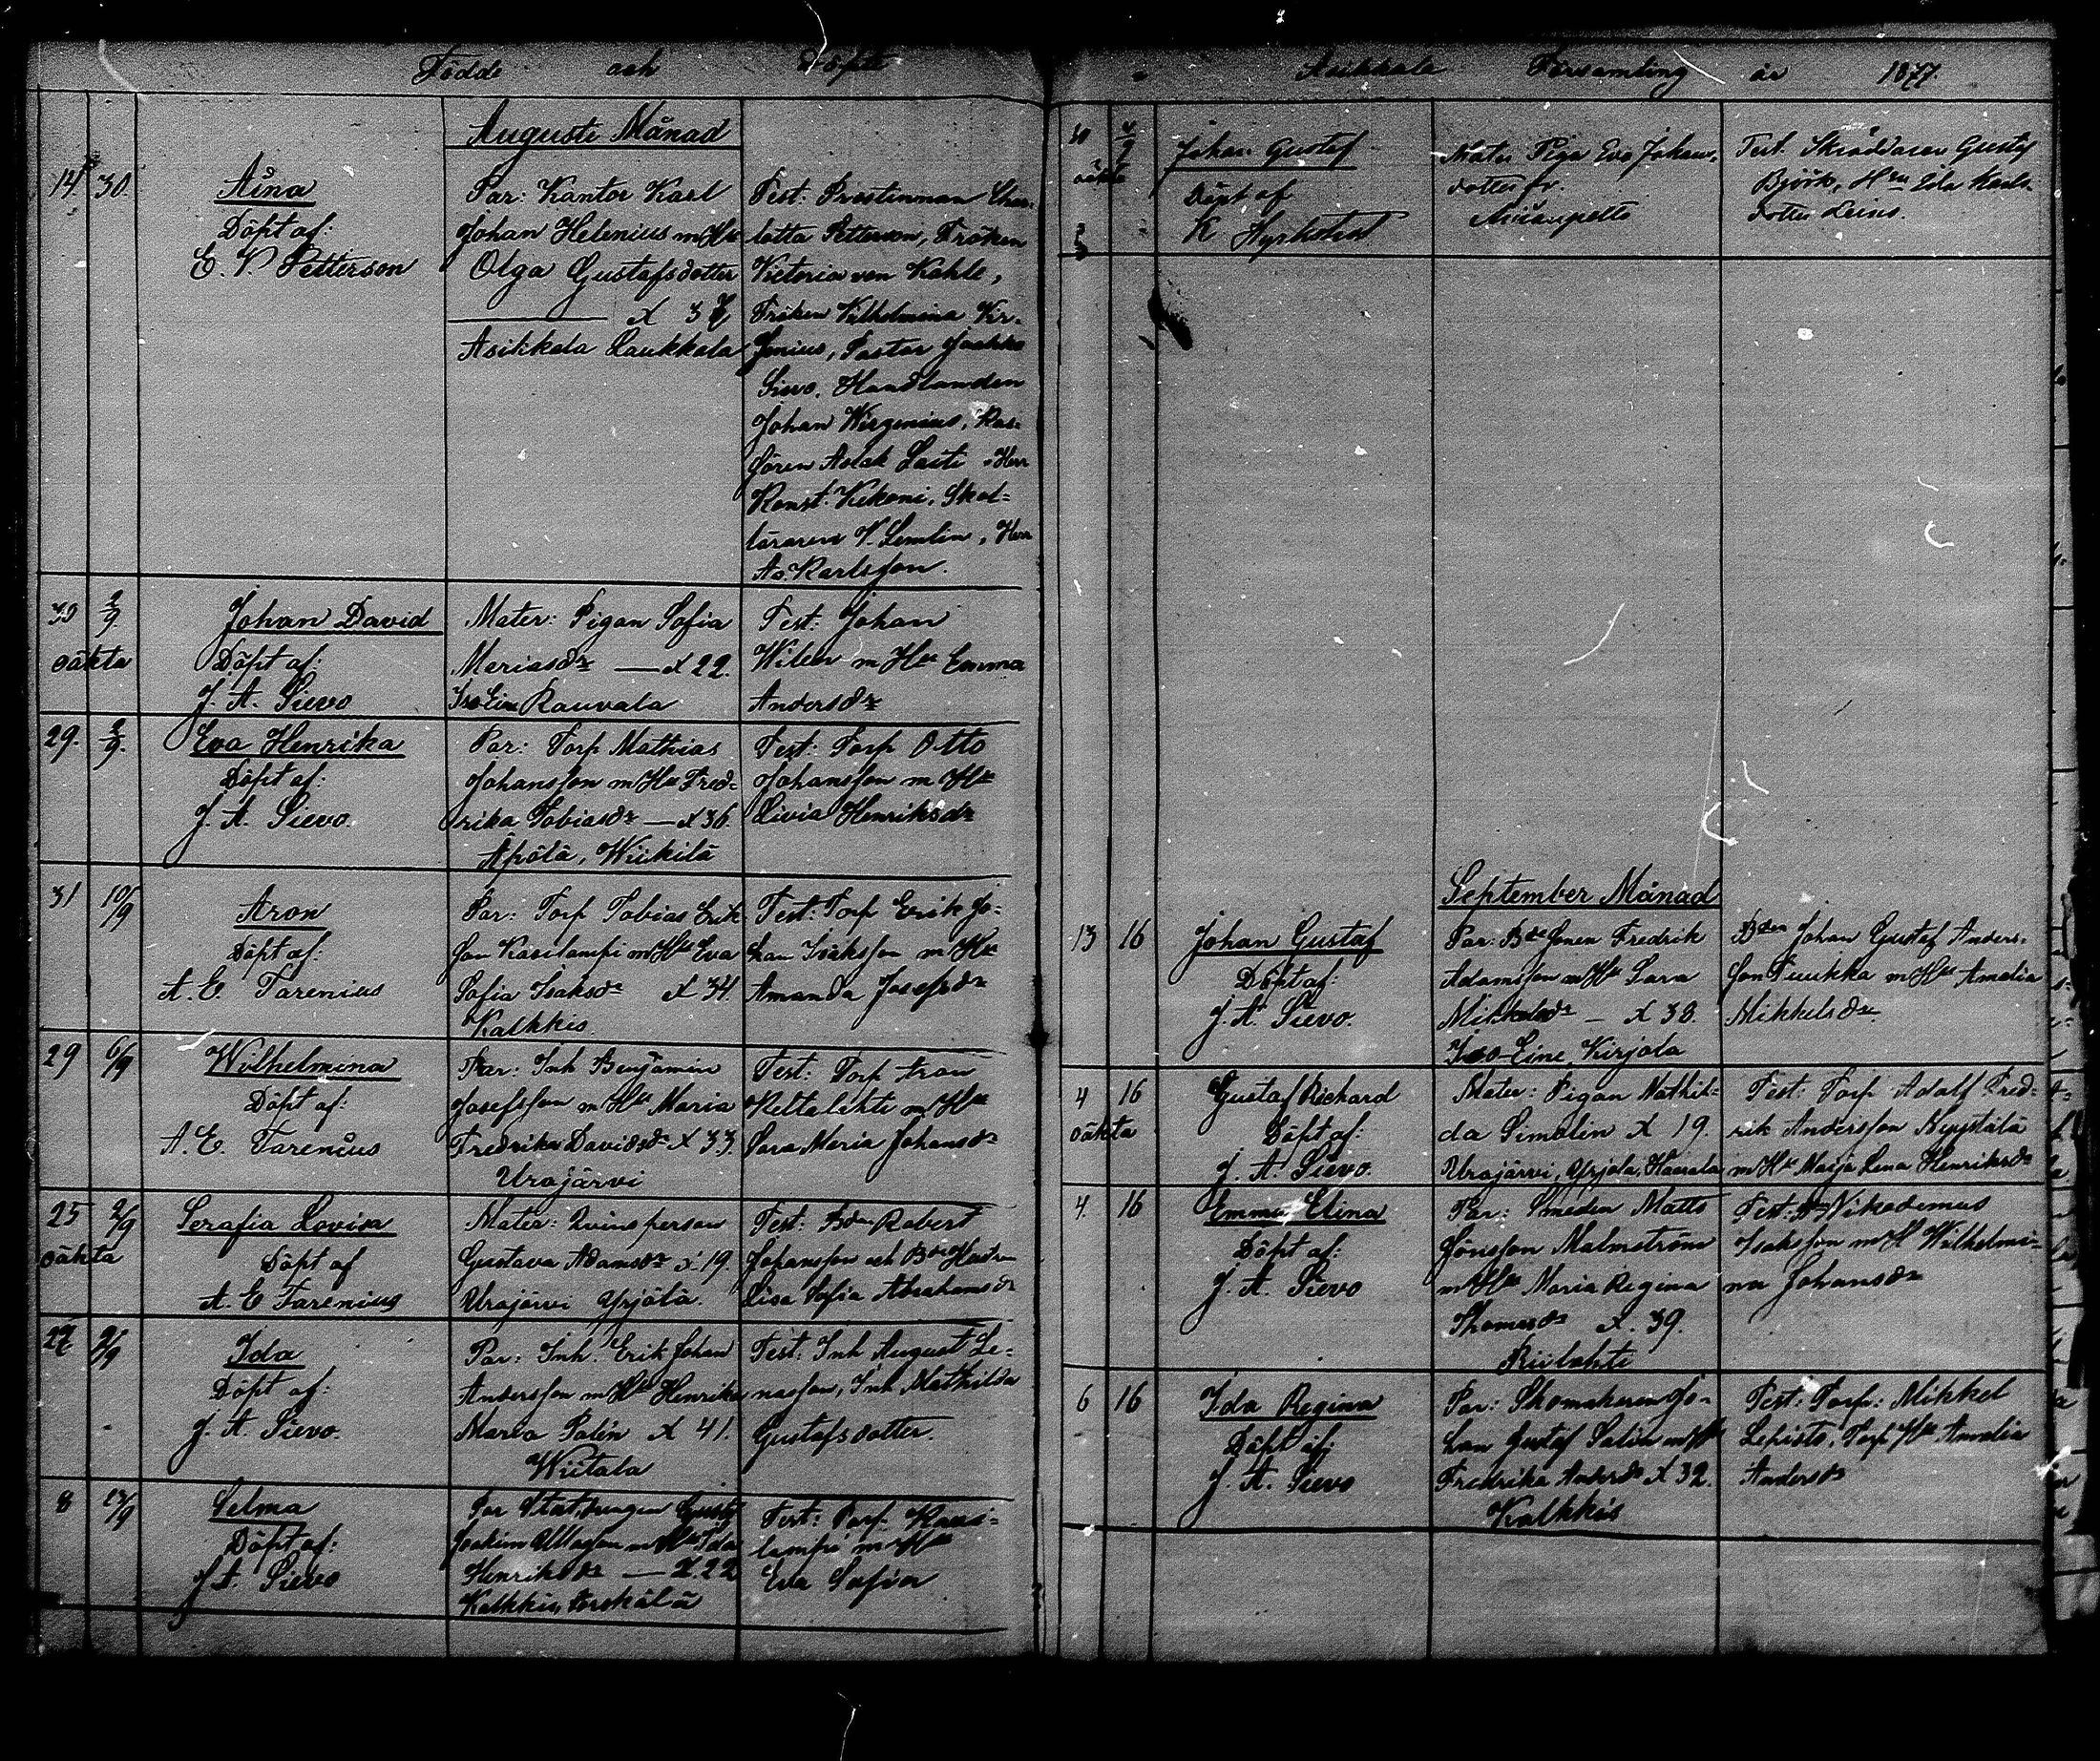 Födde och Döpte
Augusti Månad
14 30. Aina
Döpt af:
E. V. Petterson
Par: Kantor Karl
Johan Helenius m Hu
Olga Gustafsdotter
Asikkala Laukkala
Test: Prostinnan Char-
lotta Petterson, Fröken
Victoria von Kahle,
Fröken Vilhelmina Vir-
genius, Pastor Jaakko
Sievo, Handlanden
Johan Wirgenius,
Konst. Kekoni, Skol-
läraren V. Lemlin, Herr
Karlsson.
30 2/9 oäkta
Johan David
Döpt af:
J. A. Sievo
Mater: Pigan Sofia
Mariasdr — x 22.
Iso Eine Rauvala
Test: Johan
Wilen m Hu Emma
Andersdr
29. 2/9. Eva Henrika
Döpt af:
J. A. Sievo.
Par: Torp Mathias
Johansson m Hu Fred-
rika Tobiasdr — x 36.
Äpölä, Wiikilä
Test: Torp Otto
Johansson m Hu
Livia Henriksdr
31 10/9 Aron
Döpt af:
A. E. Tarenius
Par: Torp Tobias Erik
son Kasilampi m Hu Eva
Sofia Isaksdr x 34.
Kalkkis.
Test: Torp Erik Jo-
han Isaksson m Hu
Amanda Josefsdr
29 6/9 Wilhelmina
Döpt af:
A. E. Tarenius
Par: Inh Benjamin
Josefsson m Hu Maria
Fredrika Davidsdr x 33.
Urajärvi
Test: Torp Aron
Keltalahti m Hu
Sara Maria Johansdr
25 2/9 oäkta
Serafia Lovisa
Döpt af
A. E Tarenius
Mater: Qvinsperson
Gustava Adamsdr x 19.
Urajärvi Yrjölä.
Test: Bden Robert
Johansson och
Lisa Sofia Abrahamsdr
27 9/9 Ida
Döpt af:
J. A. Sievo.
Par: Inh. Erik Johan
Andersson m Hu Henrika
Maria Palin x 41.
Wiitala
Test: Inh August Le-
nasson, Inh Mathilda
Gustafsdotter.
8 13/9 Selma
Döpt af:
J A. Sievo
Par Gustaf
Joakim m Hu Ida
Henriksdr — x 22
Kalkkis,
Test: Torp. Kasi-
lampi m Hu
Eva Sofia
i Asikkala Församling år 1877.
30 oäkta
Johan Gustaf
Döpt af
K
Mater Piga Eva Johans-
dotter fr.
Test. Skräddaren Gustaf
Björk, Hru Ida Karls-
dotter Leino.
September Månad
13 16 Johan Gustaf
Döpt af:
J. A. Sievo.
Par: Bdesonen Fredrik
Adamsson m Hu Sara
Mikkelsdr — x 38.
Iso-Eine, Kirjola
Bden Johan Gustaf Anders-
son Puukka m Hu Amalia
Mikkelsdr.
4 16 oäkta
Gustaf Richard
Döpt af:
J. A. Sievo.
Mater: Pigan Mathil-
da Simolin x 19.
Urajärvi, Yrjola,
Test: Torp Adolf Fred-
rik Andersson
m Hu Maija Lena Henriksdr
4. 16 Emma Elina
Döpt af:
J. A. Sievo
Par: Smeden Matts
Jönsson Malmström
m Hu Maria Regina
Thomasdr x. 39.
Riilahti
Test: Nikodemus
Isaksson m H Wilhelmi-
na Johansdr
6 16 Ida Regina
Döpt af:
J. A. Sievo
Par: Skomakeren Jo-
han Gustaf Salin m Hu
Fredrika Andersdr x 32.
Kalkkis
Test: Torp: Mikkel
Lepistö, Torp Hu Amalia
Andersdr